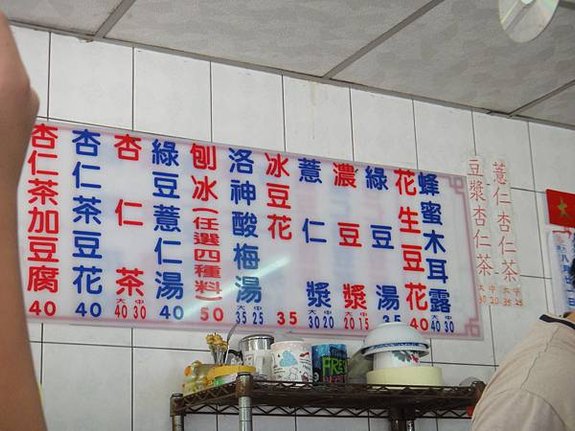 薏仁杏仁茶
大中
35 25
豆漿杏仁茶
大中
30 20
蜂蜜木耳露
大中
40 30
花生豆花
40
綠豆湯
35
濃豆漿
大中
20 15
薏仁漿
大中
30 20
冰豆花
35
洛神酸梅湯
大中
35 25
刨冰(任選四種料)
50
綠豆薏仁湯
40
杏仁茶
大中
40 30
杏仁茶豆花
40
杏仁茶加豆腐
40